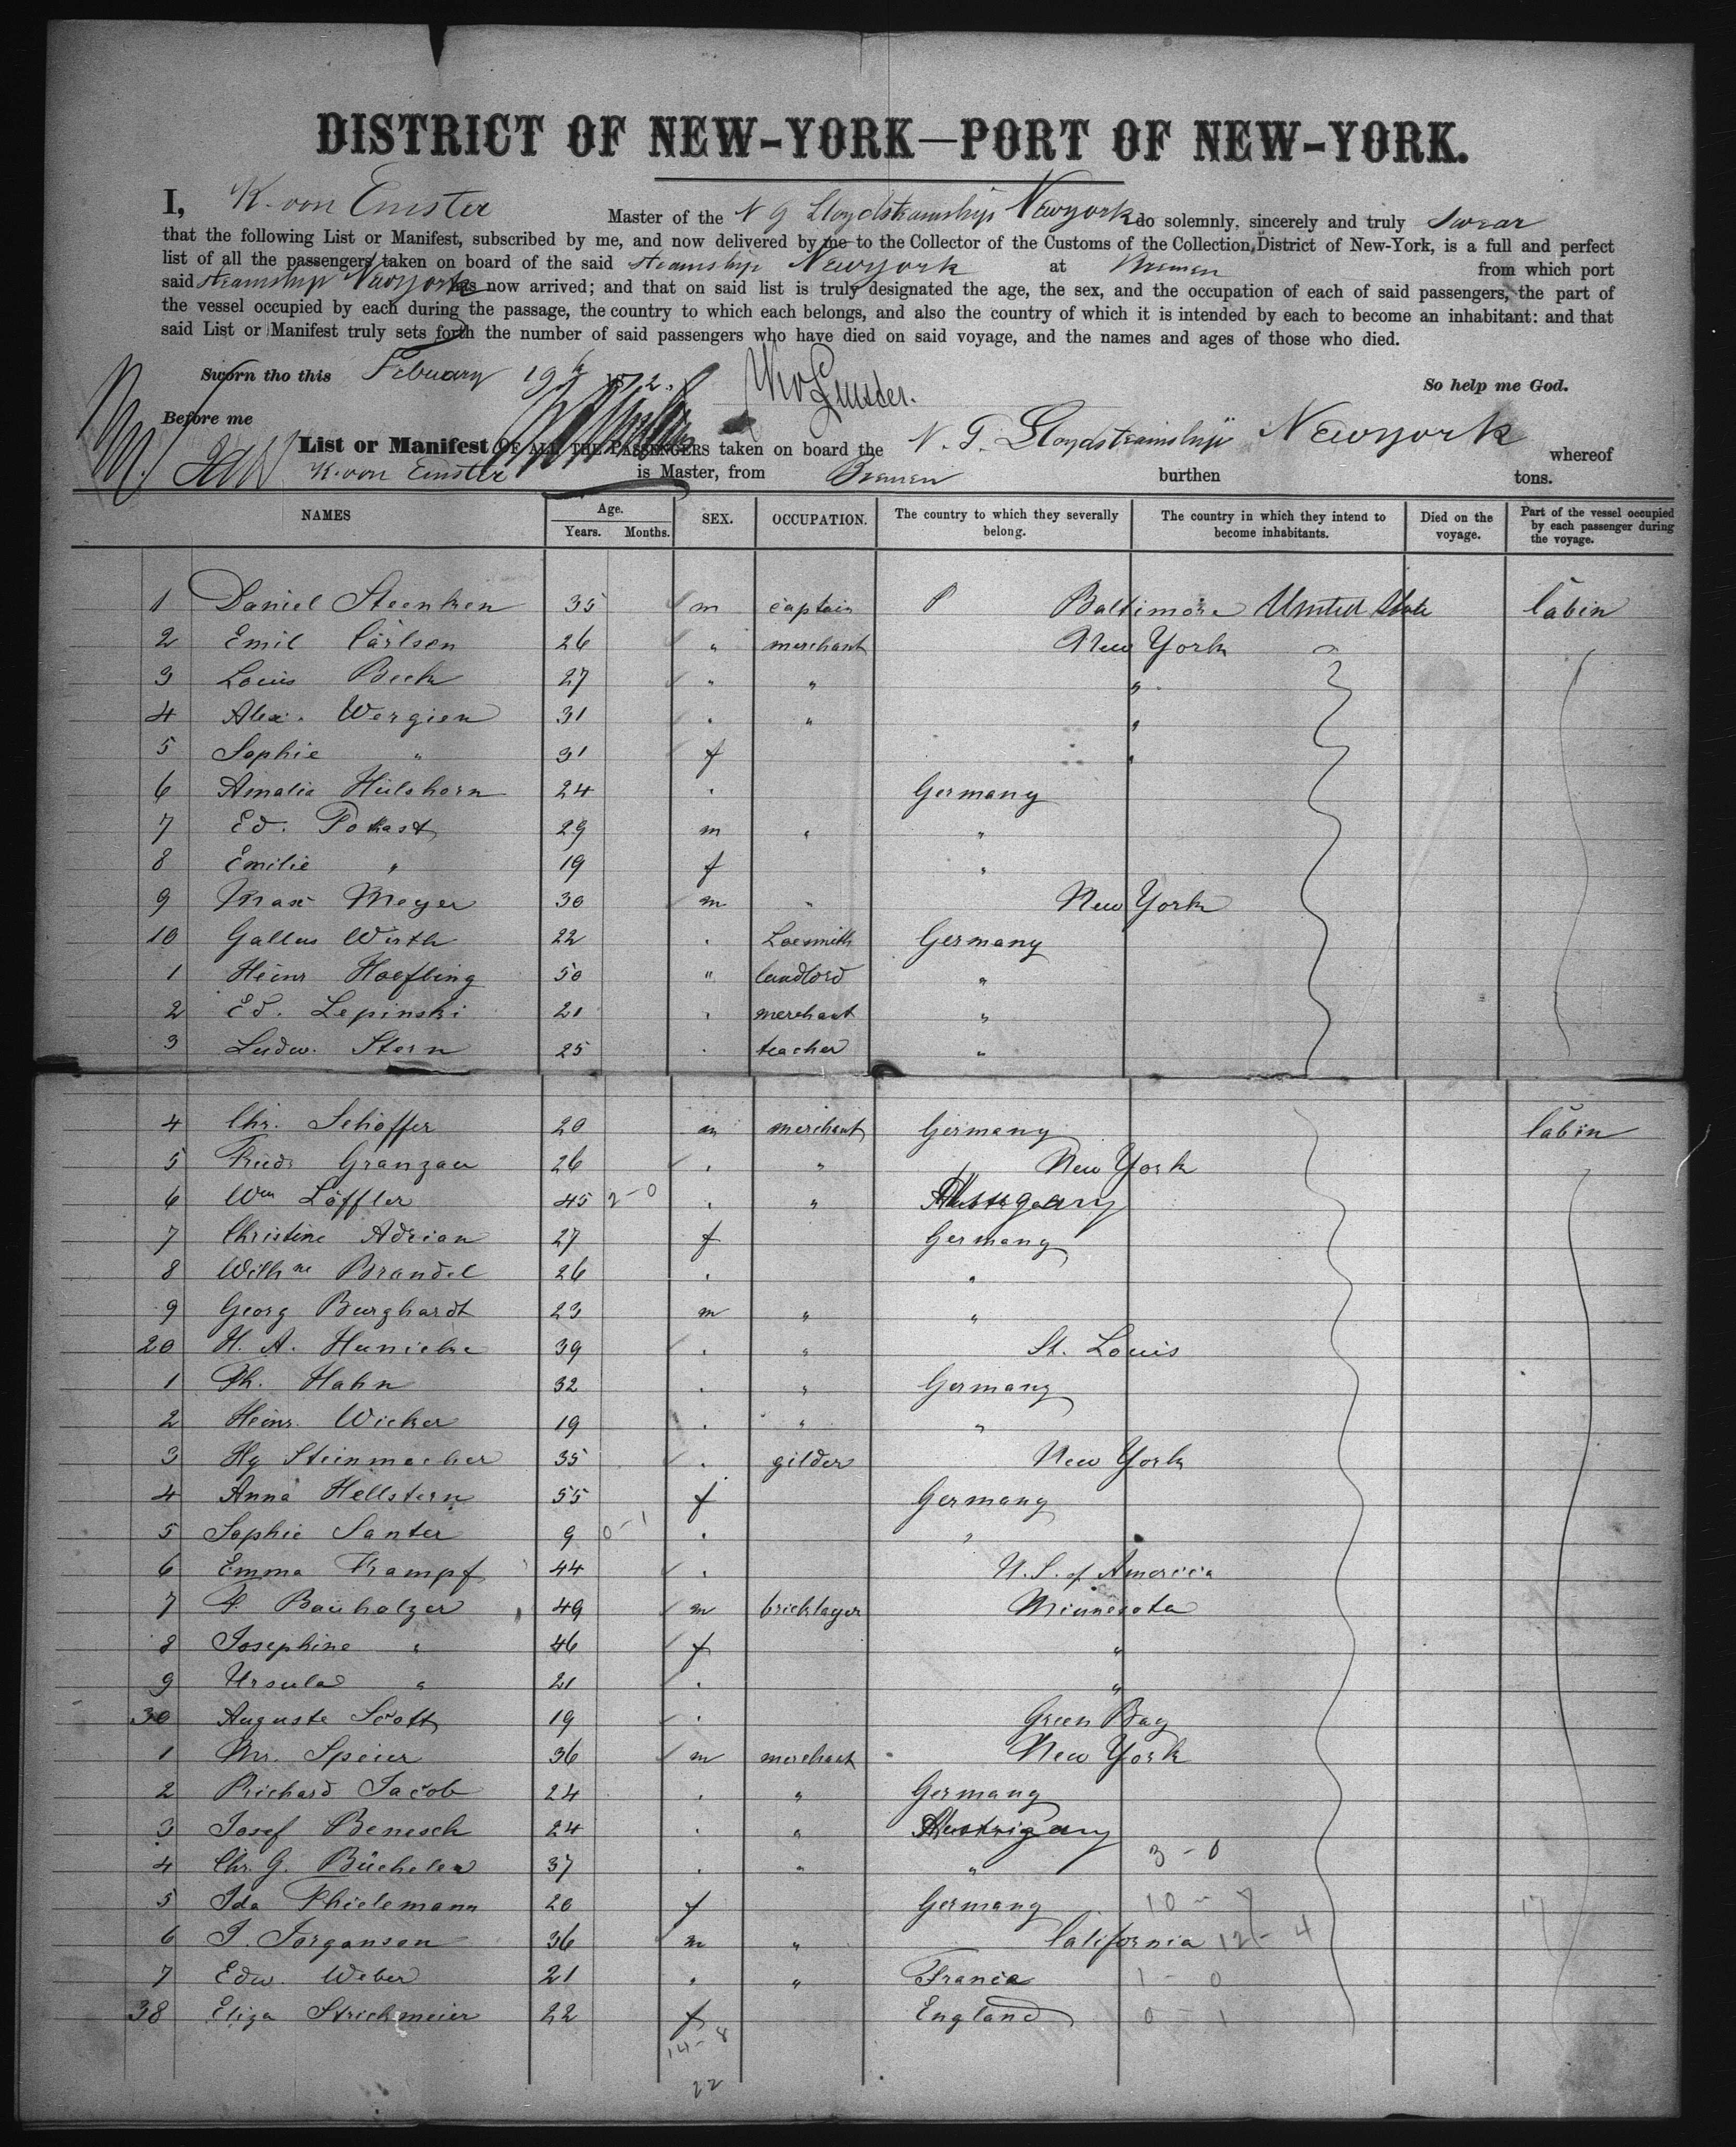 DISTRICT OF NEW-YORK—PORT OF NEW-YORK.
I, K. von Emster Master of the N G Lloydsteamship Newyork do solemnly, sincerely and truly swear
that the following List or Manifest, subscribed by me, and now delivered by me to the Collector of the Customs of the Collection District of New-York, is a full and perfect
list of all the passengers taken on board of the said steamship Newyork at Bremen from which port
said steamship Newyork has now arrived; and that on said list is truly designated the age, the sex, and the occupation of each of said passengers, the part of
the vessel occupied by each during the passage, the country to which each belongs, and also the country of which it is intended by each to become an inhabitant: and that
said List or Manifest truly sets forth the number of said passengers who have died on said voyage, and the names and ages of those who died.
Sworn tho this Febuary 19th 1872. KvEmster. So help me God.
Before me
List or Manifest OF ALL THE PASSENGERS taken on board the N. G. Lloydsteamship Newyork whereof
K. von Emster is Master, from Bremen burthen tons.
NAMES Age. Years. Months. SEX. OCCUPATION. The country to which they severally belong. The country in which they intend to become inhabitants. Died on the voyage. Part of the vessel occupied by each passenger during the voyage.
1 Daniel Steenken 35 m captain Baltimore United State Cabin
2 Emil Carlsen 26 " merchant New York
3 Louis Beck 27 " " "
4 Alex. Wergien 31 " " "
5 Sophie " 31 f "
6 Amalie Hülshorn 24 " Germany
7 Ed. Pokast 29 m " "
8 Emilie " 19 f "
9 Max Meyer 30 m " New York
10 Gallus Wirth 22 " Locsmith Germany
1 Heinr Hoefling 50 " landlord "
2 Ed. Lepinski 21 " merchant "
3 Ludw. Stern 25 " teacher "
4 Chr. Schöffer 20 m merchant Germany Cabin
5 Friedr Granzau 26 " " New York
6 Wm Löffler 45 2-0 " "
7 Christine Adrian 27 f Germany
8 Wilhne Brandel 26 " "
9 Georg Burghardt 23 m " "
20 H. A. Hunicke 39 " " St. Louis
1 Ph. Hahn 32 " " Germany
2 Heinr. Wicker 19 " " "
3 Hy Steinmacher 35 " gilder New York
4 Anna Hellstern 55 f Germany
5 Sophie Santer 9 0-1 " "
6 Emma Krampf 44 " U.S. of America
7 F. Bauholzer 49 m bricklayer Minnesota
8 Josephine " 46 f "
9 Ursula " 21 " "
30 Auguste Scott 19 " Green Bay
1 Mr. Speier 36 m merchant New York
2 Richard Jacob 24 " " Germany
3 Josef Benesch 24 " "
4 Chr. G. Büchelen 37 " " " 3-0
5 Ida Thielemann 20 f Germany 10-7
6 J. Jorgansen 36 m " California 12-4
7 Edw. Weber 21 " " France 1-0
38 Eliza Strickmeier 22 f England 0-1
14-8
22